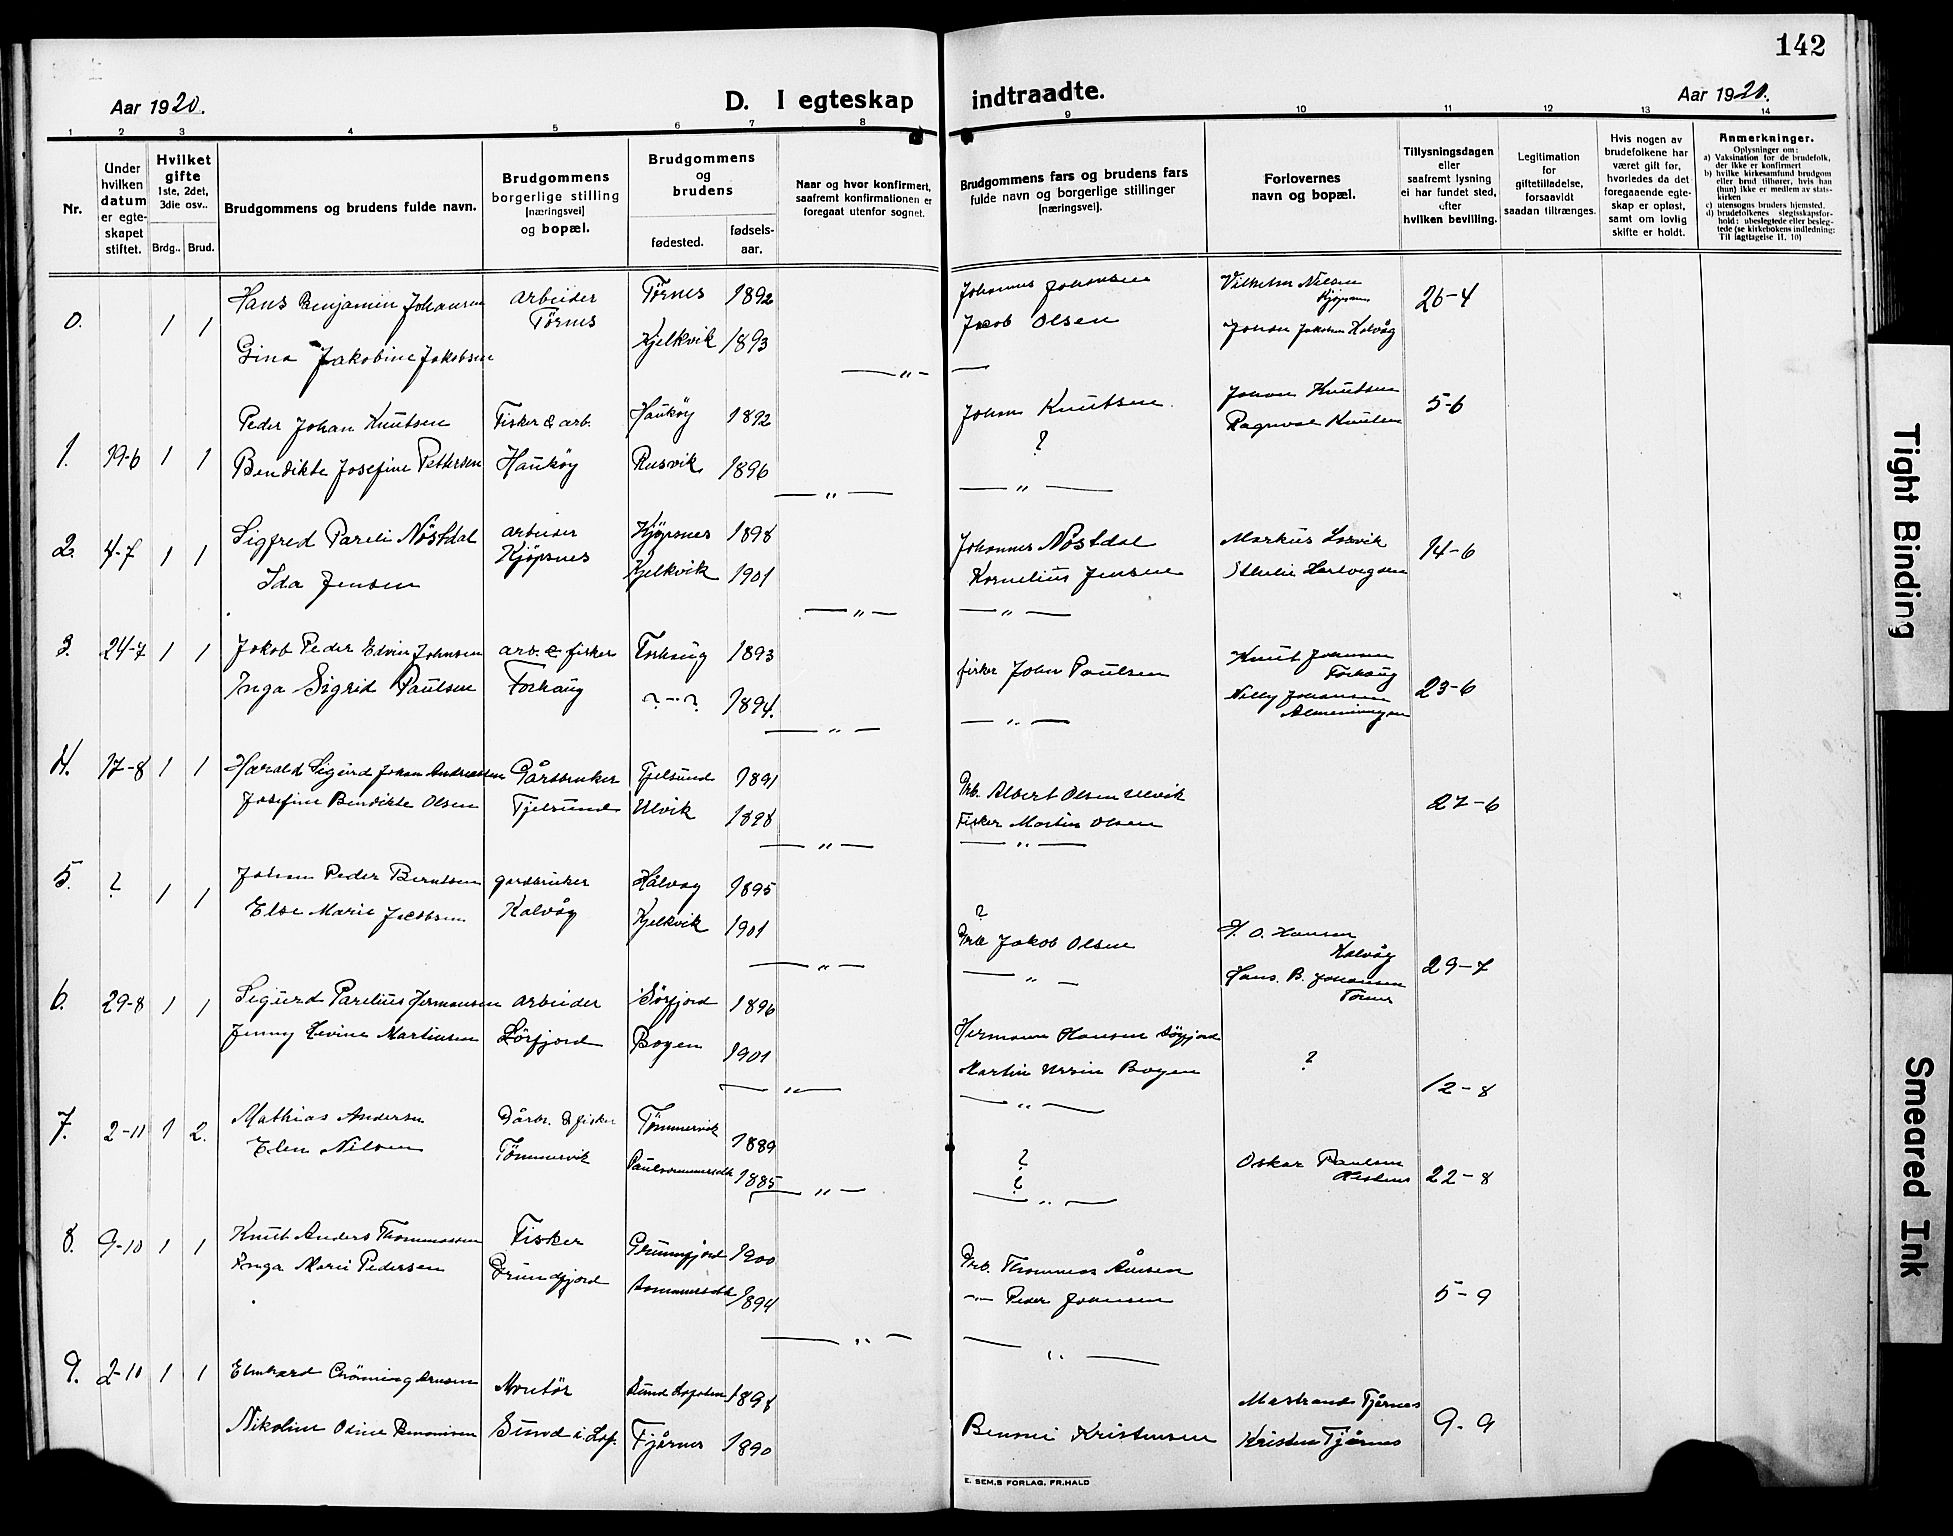 142
Aar 1920.
D. I egteskap indtraadte.
Aar 1920.
1 2 3 4 5 6 7 8 9 10 11 12 13 14
Nr.
Under hvilken datum er egteskapet stiftet.
Hvilket gifte 1ste, 2det, 3die osv..
Brdg.. Brud.
Brudgommens og brudens fulde navn.
Brudgommens borgerlige stilling (næringsvei) og bopæl.
Brudgommens og brudens
fødested.
fødselsaar.
Naar og hvor konfirmert, saafremt konfirmationen er foregaat utenfor sognet.
Brudgommens fars og brudens fars fulde navn og borgerlige stillinger (næringsvei).
Forlovernes navn og bopæl.
Tillysningsdagen eller saafremt lysning ei har fundet sted, efter hvilken bevilling.
Legitimation for giftetilladelse, forsaavidt saadan tiltrænges.
Hvis nogen av brudefolkene har været gift før, hvorledes da det foregaaende egteskap er opløst, samt om lovlig skifte er holdt.
Anmerkninger.
Oplysninger om:
a) Vaksination for de brudefolk, der ikke er konfirmert
b) hvilke kirkesamfund brudgom eller brud tilhører, hvis han (hun) ikke er medlem av statskirken
c) utensogns bruders hjemsted.
d) brudefolkenes slegtsskapsforhold: ubeslegtede eller beslegtede (se kirkebokens indledning: Til Iagttagelse II. 10)
0. 1 1 Hans Benjamin Johansen arbeider Tørnes 1892 Johannes Johansen Vilhelm Nielsen Kjøpsnes 26-4
Tørnes
Gina Jakobine Jakobsen Kjelkvik 1893 Jacob Olsen Johan Jakobsen Kalvåg
Peder Johan Knutsen Fisker & arb. Haukøy 1892 Johan Knutsen Johan Knutsen 5-6
1. 19-6 1 1 Bendikte Josefine Pettersen Haukøy Rusvik 1896 ? Ragnval Knutsen
2. 4-7 1 1 Sigfred Pareli Nøstdal arbeider Kjøpsnes 1898 Johannes Nøstdal Markus 14-6
Ida Jensen Kjøpsnes Kjelkvik 1901 Kornelius Jensen Hartvigsen
3. 24-7 1 1 Jakob Peder Edvin Johnsen arb. & fisker Forhaug 1893 fisker John Paulsen Knut Johansen Forhaug 23-6
Inga Sigrid Paulsen Forhaug ?-"-? 1894. Nelly Johansen Almenningen
4. 17-8 1 1 Harald Sigurd Johan Andreassen Gårdbruker Tjelsund 1891 Grb. Albert Olsen Ulvik 27-6
Josefine Bendikte Olsen Tjelsund Ulvik 1898 Fisker Martin Olsen
5. ? 1 1 Johan Peder Berntsen gardbruker Kalvåg 1895 ?
Else Marie Jacobsen Kalvåg Kjelkvik 1901 Grb Jakob Olsen H. O. Hansen Kalvåg 29-7
Hans. B. Johansen
6. 29-8 1 1 Sigurd Parelius Hermansen arbeider Sørfjord 1896 Hermann Hansen Sørfjord
Jenny Levine Martinsen Sørfjord Bogen 1901 Martin Bogen ? 12-8
7. 2-11 1 2. Mathias Andersen Gårbr. & fisker Tømmervik 1889 ?
Elen Nilsen Tømmervik 1885 ? Oskar Paulsen 22-8
8. 9-10 1 1 Knut Anders Thommassen Fisker Grunnfjord 1900 Grb. Thommas Åmsen
Inga Marie Pedersen Grundfjord 1894 -"- Peder Johansen 5-9
9. 2-10 1 1 Montør Sund Lofoten 1898 Mastrand Fjårnes 9-9
Nikoline Odine Sund i Lof. Fjårnes 1890 Bennie Kristensen Kristen Fjårnes
E. SEM,S FORLAG, FR.HALD
Tight Binding
Smeared Ink